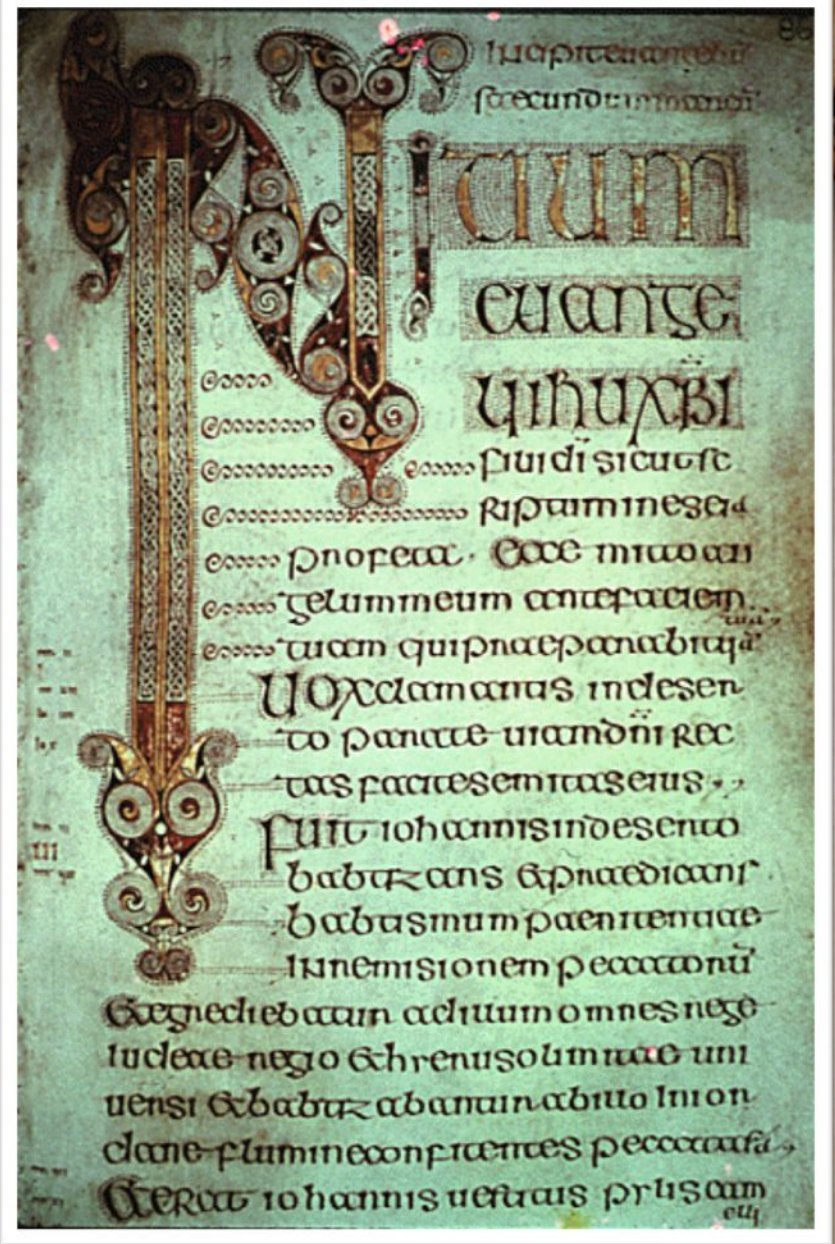 INITIUM
euange
lii ihu xpi
fili dī sicut sc
riptum in eseia
profeta · Ecce mitto an
gelum meum ante faciem
tuam qui praeparabit
Uox clamantis in deser
to parate uiam dn̄i rec
tas facite semitas eius
Fuit iohannis in deserto
babtizans & praedicans
babtismum paenitentiae
in remisionem peccatorū
& egrediebatur ad illum omnes rege
iudeae regio & hierusolimitae uni
uersi & babtizabantur ab illo in ior
dane flumine confitentes peccata
& ERAT iohannis uestitus pylis cam
eli
III